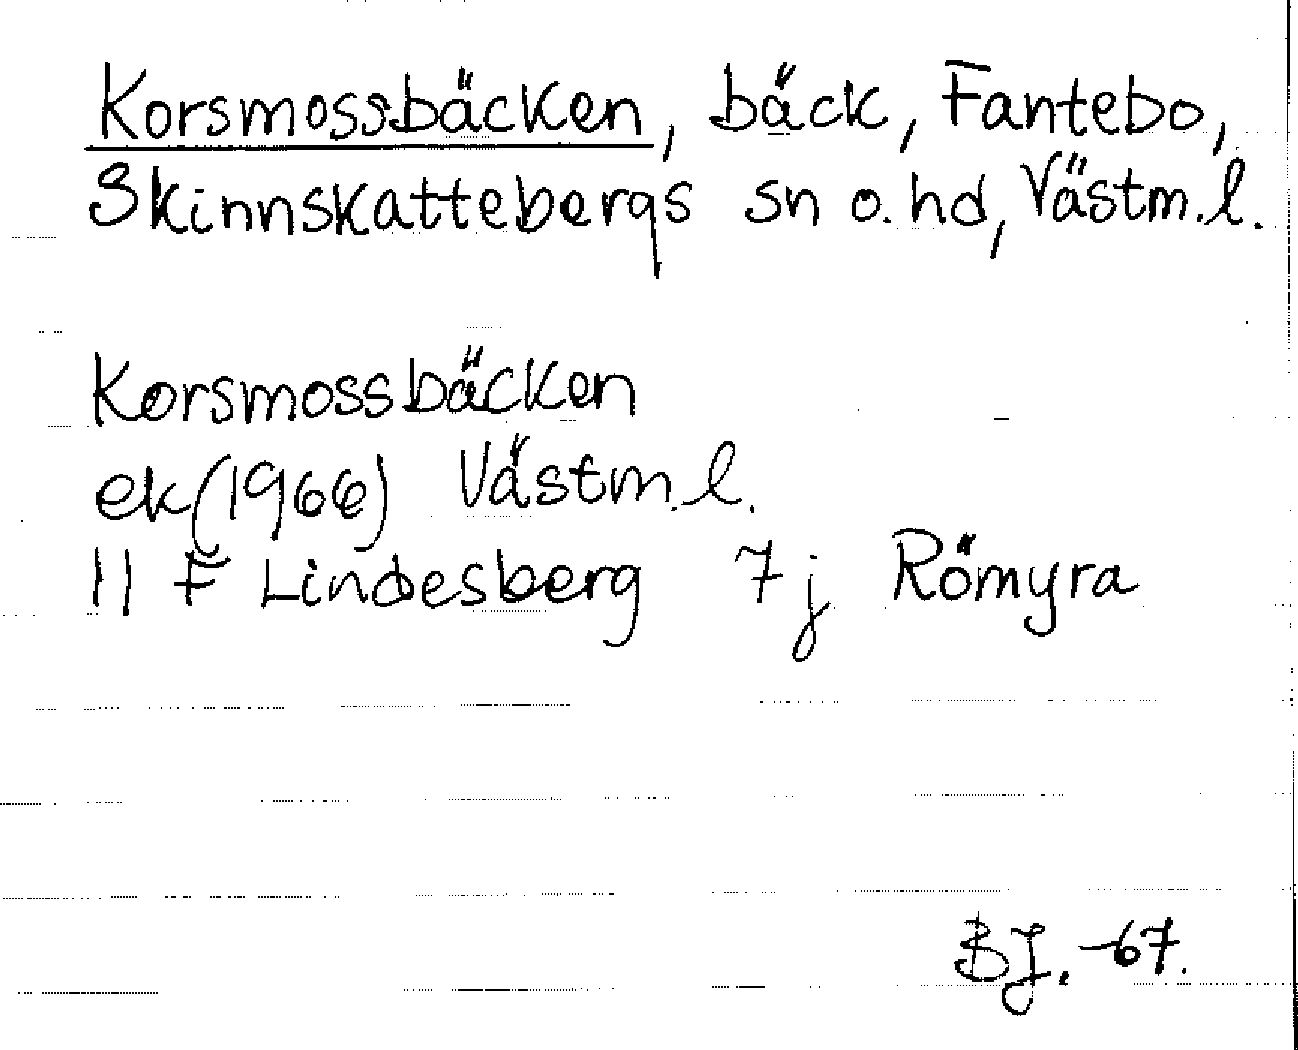 Korsmossbäcken, bäck, Fantebo,
Skinnskattebergs sn o. hd, Västm. l.
Korsmossbäcken
ek (1966) Västm. l.
11 F Lindesberg 7 j Römyra
BJ. -67.